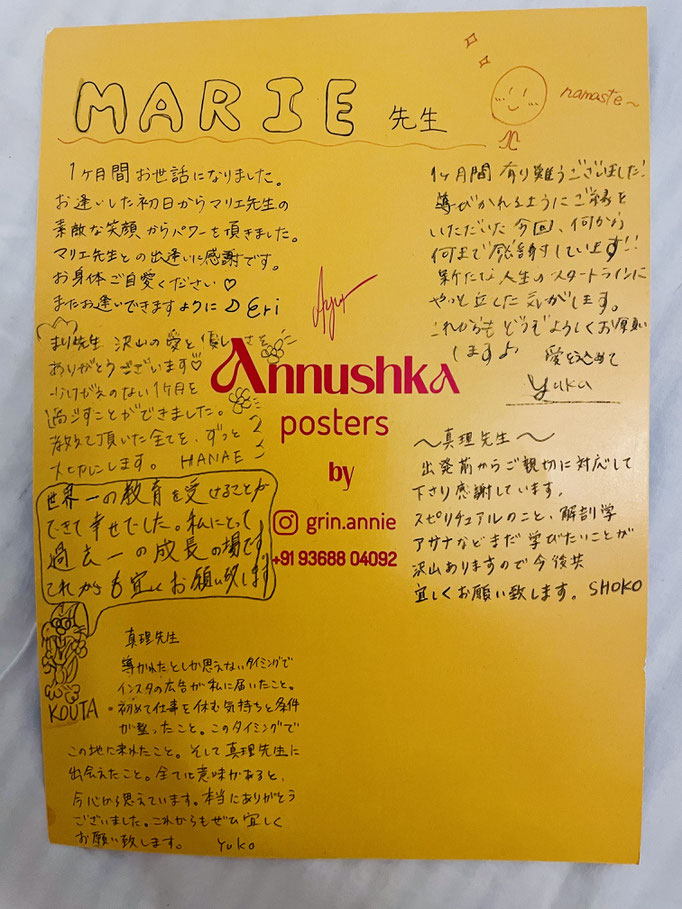 MARIE 先生
namaste~
1ヶ月間お世話になりました。
お逢いした初日からマリエ先生の
素敵な笑顔からパワーを頂きました。
マリエ先生との出逢いに感謝です。
お身体ご自愛ください♡
またお逢いできますように♪ Eri
まり先生 沢山の愛と優しさを
ありがとうございます♡
かけがえのない1ヶ月を
過ごすことができました。
教えて頂いた全てを、ずっと
大切にします。 HANAE
世界一の教育を受けることが
できて幸せでした。私にとって
過去一の成長の場です。
これからも宜しくお願い致します
KOUTA
真理先生
導かれたとしか思えないタイミングで
インスタの広告が私に届いたこと。
初めて仕事を休む気持ちと条件
が整ったこと。このタイミングで
この地に来れたこと。そして真理先生に
出会えたこと。全てに意味があると、
今心から思えています。本当にありがとう
ございました。これからもぜひ宜しく
お願い致します。 Yuko
Annushka
posters
by
grin.annie
+91 93688 04092
1ヶ月間有り難うございました!
導びかれるようにご縁を
いただいた今回、何から
何まで感謝しています!!
新たな人生のスタートラインに
やっと立てた気がします。
これからもどうぞよろしくお願い
します♪ 愛を込めて
Yuka
〜真理先生〜
出発前からご親切に対応して
下さり感謝しています。
スピリチュアルのこと、解剖学
アサナなどまだ学びたいことが
沢山ありますので今後共
宜しくお願い致します。SHOKO